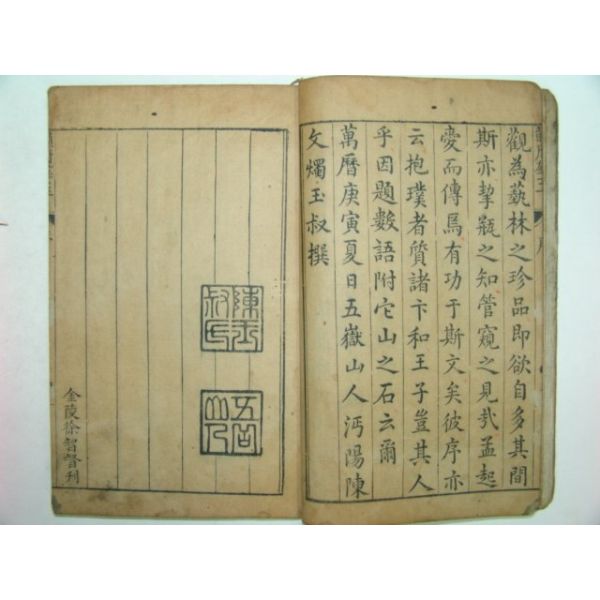 觀為藝林之珍品即欲自多其間
斯亦挈瓶之知管窺之見㢤孟起
愛而傳焉有功于斯文矣彼序亦
云抱璞者質諸卞和王子豈其人
乎因題數語附它山之石云爾
萬曆庚寅夏日五嶽山人沔陽陳
文燭玉叔撰
陳玉叔氏
五岳山人
金陵徐智督刊